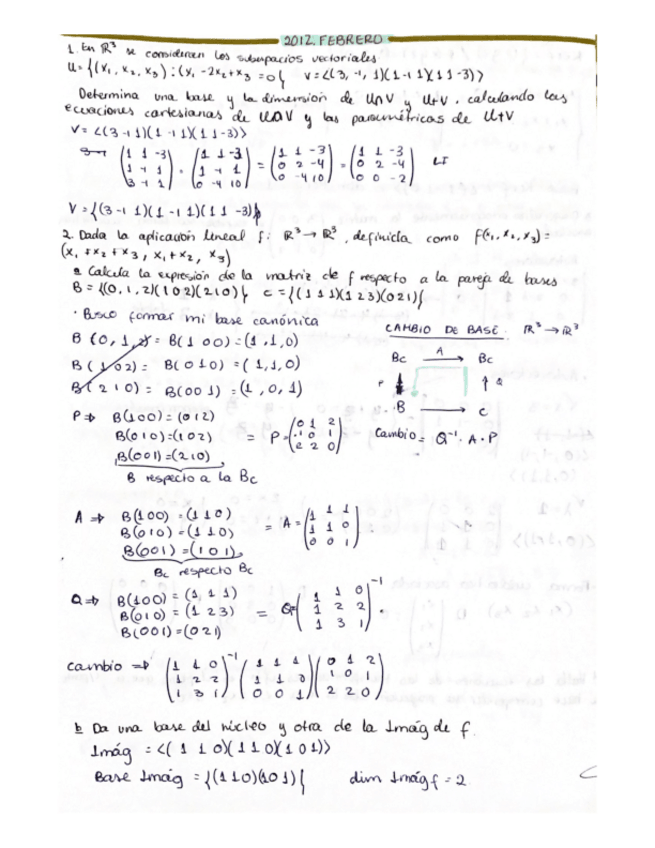 2012. FEBRERO
1. En ℝ³ se consideren los subespacios vectoriales
U = {(x₁, x₂, x₃) : (x₁ - 2x₂ + x₃ = 0}  V = <(3, -1, 1)(1 -1 1)(1 1 -3)>
Determina una base y la dimensión de U∩V y U+V, calculando las
ecuaciones cartesianas de U∩V y las paramétricas de U+V
V = <(3 -1 1)(1 -1 1)(1 1 -3)>
(1 1 -3) (1 1 -3) = (1 1 -3) = (1 1 -3) LI
(1 -1 1) (1 -1 1) (0 2 -4) (0 2 -4)
(3 -1 1) (0 -4 10) (0 -4 10) (0 0 -2)
V = {(3 -1 1)(1 -1 1)(1 1 -3)}
2. Dada la aplicación lineal f: ℝ³ → ℝ³, definida como f(x₁, x₂, x₃) =
(x₁ + x₂ + x₃, x₁ + x₂, x₃)
a Calcula la expresión de la matriz de f respecto a la pareja de bases
B = {(0, 1, 2)(1 0 2)(2 1 0)}, C = {(1 1 1)(1 2 3)(0 2 1)}
· Busco formar mi base canónica
CAMBIO DE BASE. ℝ³ → ℝ³
B (0, 1, 2) = B(1 0 0) = (1, 1, 0)
B (1 0 2) = B(0 1 0) = (1, 1, 0)
B (2 1 0) = B(0 0 1) = (1, 0, 1)
Bc A Bc
P Q
B C
Cambio = Q⁻¹ · A · P
P ⇒ B(1 0 0) = (0 1 2)
B(0 1 0) = (1 0 2) = P = (0 1 2)
(1 0 1)
B(0 0 1) = (2 1 0) (2 2 0)
B respecto a la Bc
A ⇒ B(1 0 0) = (1 1 0) (1 1 1)
B(0 1 0) = (1 1 0) = A = (1 1 0)
B(0 0 1) = (1 0 1) (0 0 1)
Bc respecto Bc
Q ⇒ B(1 0 0) = (1 1 1) (1 1 0)⁻¹
B(0 1 0) = (1 2 3) = Q = (1 2 2)
B(0 0 1) = (0 2 1) (1 3 1)
cambio ⇒ (1 1 0)⁻¹ (1 1 1) (0 1 2)
(1 2 2) (1 1 0) (1 0 1)
(1 3 1) (0 0 1) (2 2 0)
b Da una base del núcleo y otra de la Imág de f.
Imág = <(1 1 0)(1 1 0)(1 0 1)>
Base Imág = {(1 1 0)(1 0 1)} dim Imág f = 2.